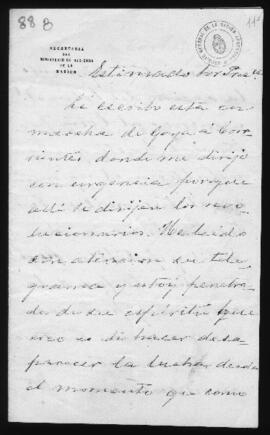 88 8
SECRETARIA
DEL
MINISTERIO DE HACIENDA
DE LA
NACION
Estimado Sor
Le escribo esta en
marcha de Goya á Cor
rientes donde me dirijo
con urgencia porque
alli se dirijen los revo
lucionarios. He leido
con atencion su tele
grama y estoy penetra
do de su espíritu que
creo es di hacer desa
parecer la lucha desde
el momento que como